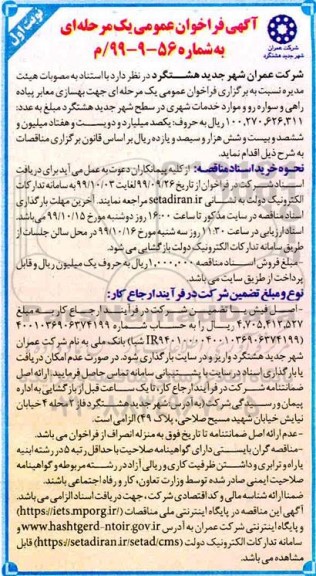 نوبت اول
آگهی فراخوان عمومی یک مرحله‌ای
به شماره ۵۶-۹-۹۹/م
شرکت عمران
شهر جدید هشتگرد
شرکت عمران شهر جدید هشتگرد در نظر دارد با استناد به مصوبات هیئت
مدیره نسبت به برگزاری فراخوان عمومی یک مرحله ای جهت بهسازی معابر پیاده
راهی و سواره رو و موارد خدمات شهری در سطح شهر جدید هشتگرد مبلغ به عدد:
۱۰۰,۲۷۰,۶۲۶,۳۱۱ ریال به حروف: یکصد میلیارد و دویست و هفتاد میلیون و
ششصد و بیست و شش هزار و سیصد و یازده ریال بر اساس قانون برگزاری مناقصات
به شرح ذیل اقدام نماید.
نحوه خرید اسناد مناقصه: از کلیه پیمانکاران دعوت به عمل می آید برای دریافت
اسناد شرکت در فراخوان از تاریخ ۹۹/۰۹/۲۶ لغایت ۹۹/۱۰/۰۳ به سامانه تدارکات
الکترونیک دولت به نشانی setadiran.ir مراجعه نمایند. آخرین مهلت بارگذاری
اسناد مناقصه در سایت مذکور تا ساعت ۱۶:۰۰ روز دوشنبه مورخ ۹۹/۱۰/۱۵ می‌باشد.
اسناد ارزیابی در ساعت ۱۱:۳۰ روز سه شنبه مورخ ۹۹/۱۰/۱۶ در محل سالن جلسات از
طریق سامانه تدارکات الکترونیک دولت بازگشایی می شود.
مبلغ فروش اسناد مناقصه ۱,۰۰۰,۰۰۰ ریال به حروف یک میلیون ریال و قابل
پرداخت از طریق سایت می باشد.
نوع و مبلغ تضمین شرکت در فرآیند ارجاع کار:
-اصل فیش واریزی تضمین شرکت در فرآیند ارجاع کار به مبلغ
۴,۷۰۵,۴۱۲,۵۲۷ ریال را به حساب شماره ۴۰۰۱۰۳۶۹۰۶۳۷۴۱۹۹
شبا) بانک ملی به نام شرکت عمران
شهر جدید هشتگرد واریز و در سایت بارگذاری شود. در صورت عدم امکان دریافت
یا بارگذاری اسناد در سایت با پشتیبانی سامانه تماس حاصل فرمایید. ارائه اصل
ضمانتنامه شرکت در فرآیند ارجاع کار، تا یک ساعت قبل از بازگشایی به اداره
پیمان و رسیدگی شرکت (به آدرس شهر جدید هشتگرد فاز ۳ محله ۴ خیابان
نیایش خیابان شهید مسیح صلاحی، پلاک ۴۹) الزامی است.
-عدم ارائه اصل ضمانتنامه تا تاریخ فوق به منزله انصراف از فراخوان می باشد.
-مناقصه گران بایستی دارای گواهینامه صلاحیت با حداقل رتبه ۵ در رشته ابنیه
یا راه و ترابری و داشتن ظرفیت کاری و ریالی آزاد در رشته مربوطه و گواهینامه
صلاحیت ایمنی صادر شده توسط وزارت تعاون، کار و رفاه اجتماعی باشند.
ضمنا ارائه شناسه ملی و کد اقتصادی شرکت، جهت دریافت اسناد الزامی می باشد.
آگهی این مناقصه در پایگاه اینترنتی ملی مناقصات (https://iets.mporg.ir/)
و پایگاه اینترنتی شرکت عمران به آدرس www.hashtgerd-ntoir.gov.ir و
سامانه تدارکات الکترونیک دولت (https://setadiran.ir/setad/cms) قابل
مشاهده می باشد.